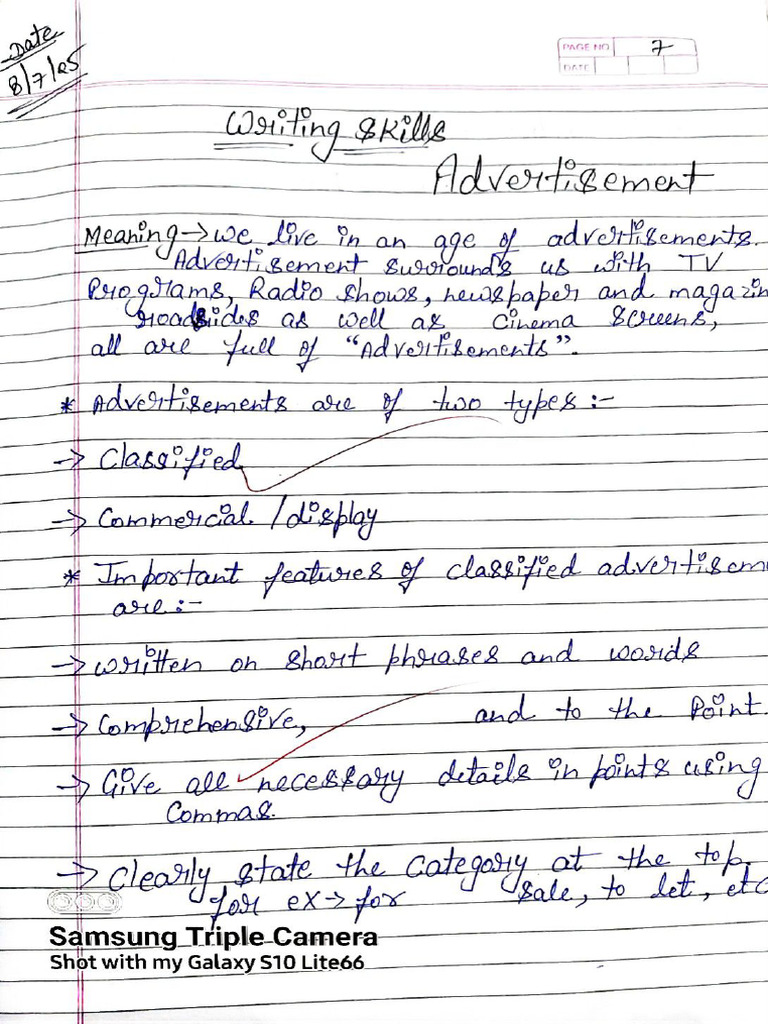 Date
8/7/25
PAGE NO 7
DATE
Writing Skills
Advertisement
Meaning → we live in an age of advertisements.
Advertisement surrounds us with TV
Programs, Radio shows, newspaper and magazin
roadsides as well as cinema screens,
all are full of "Advertisements".
* Advertisements are of two types :-
→ Classified
→ Commercial / display
* Important features of classified advertisem
are :-
→ written on short phrases and words
→ Comprehensive, and to the Point.
→ Give all necessary details in points using
Commas.
→ Clearly state the Category at the top.
for ex → for sale, to let, etc
Samsung Triple Camera
Shot with my Galaxy S10 Lite66